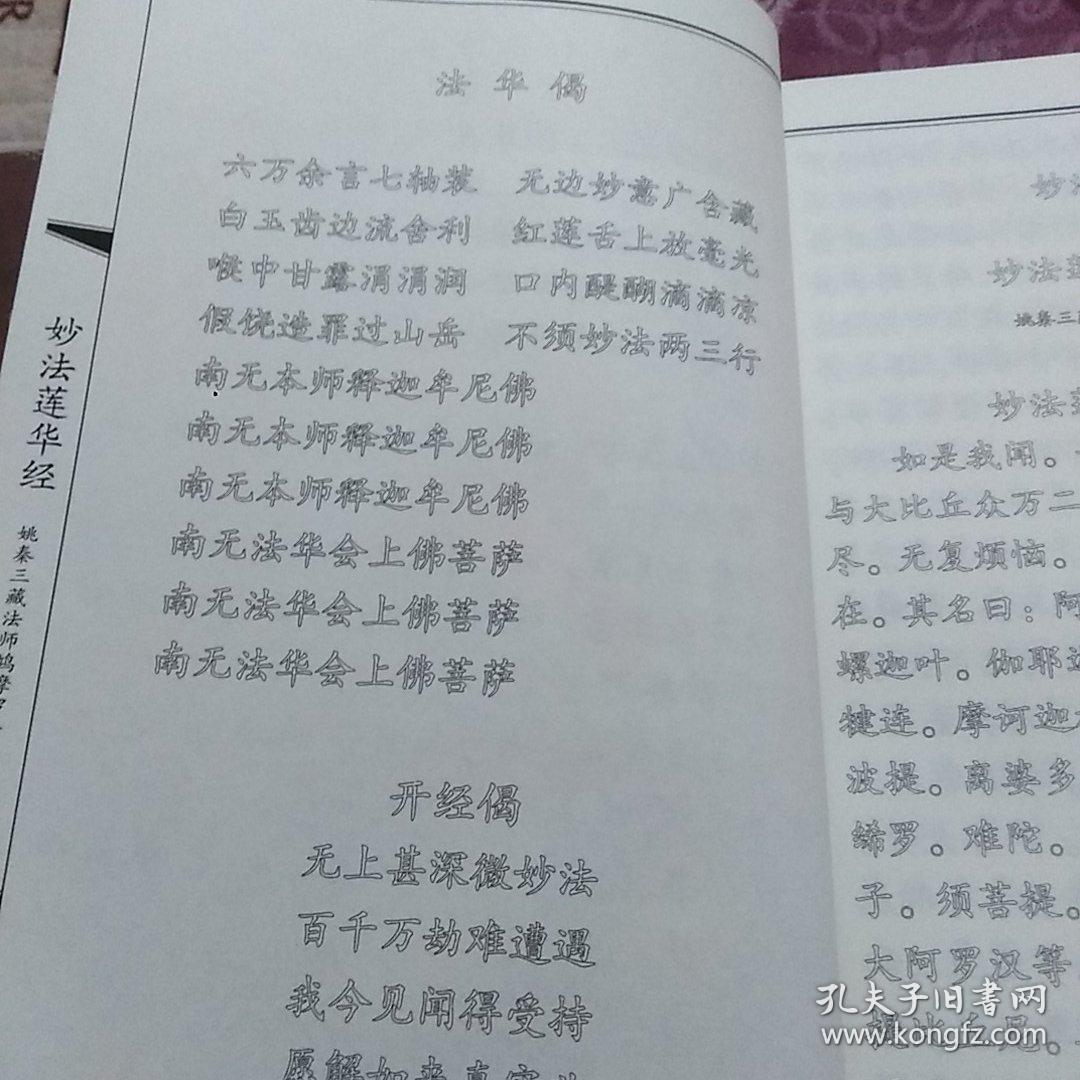 妙法莲华经
姚秦三藏法师鸠摩罗
法华偈
六万余言七轴装 无边妙意广含藏
白玉齿边流舍利 红莲舌上放毫光
喉中甘露涓涓润 口内醍醐滴滴凉
假饶造罪过山岳 不须妙法两三行
南无本师释迦牟尼佛
南无本师释迦牟尼佛
南无本师释迦牟尼佛
南无法华会上佛菩萨
南无法华会上佛菩萨
南无法华会上佛菩萨
开经偈
无上甚深微妙法
百千万劫难遭遇
我今见闻得受持
愿解如来真实
妙法
妙法莲
姚秦三
妙法莲
如是我闻。
与大比丘众万二
尽。无复烦恼。
在。其名曰：阿
螺迦叶。伽耶迦
犍连。摩诃迦
波提。离婆多
𫄨罗。难陀。
子。须菩提。
大阿罗汉等
提比丘尼。
孔夫子旧书网
www.kongfz.com